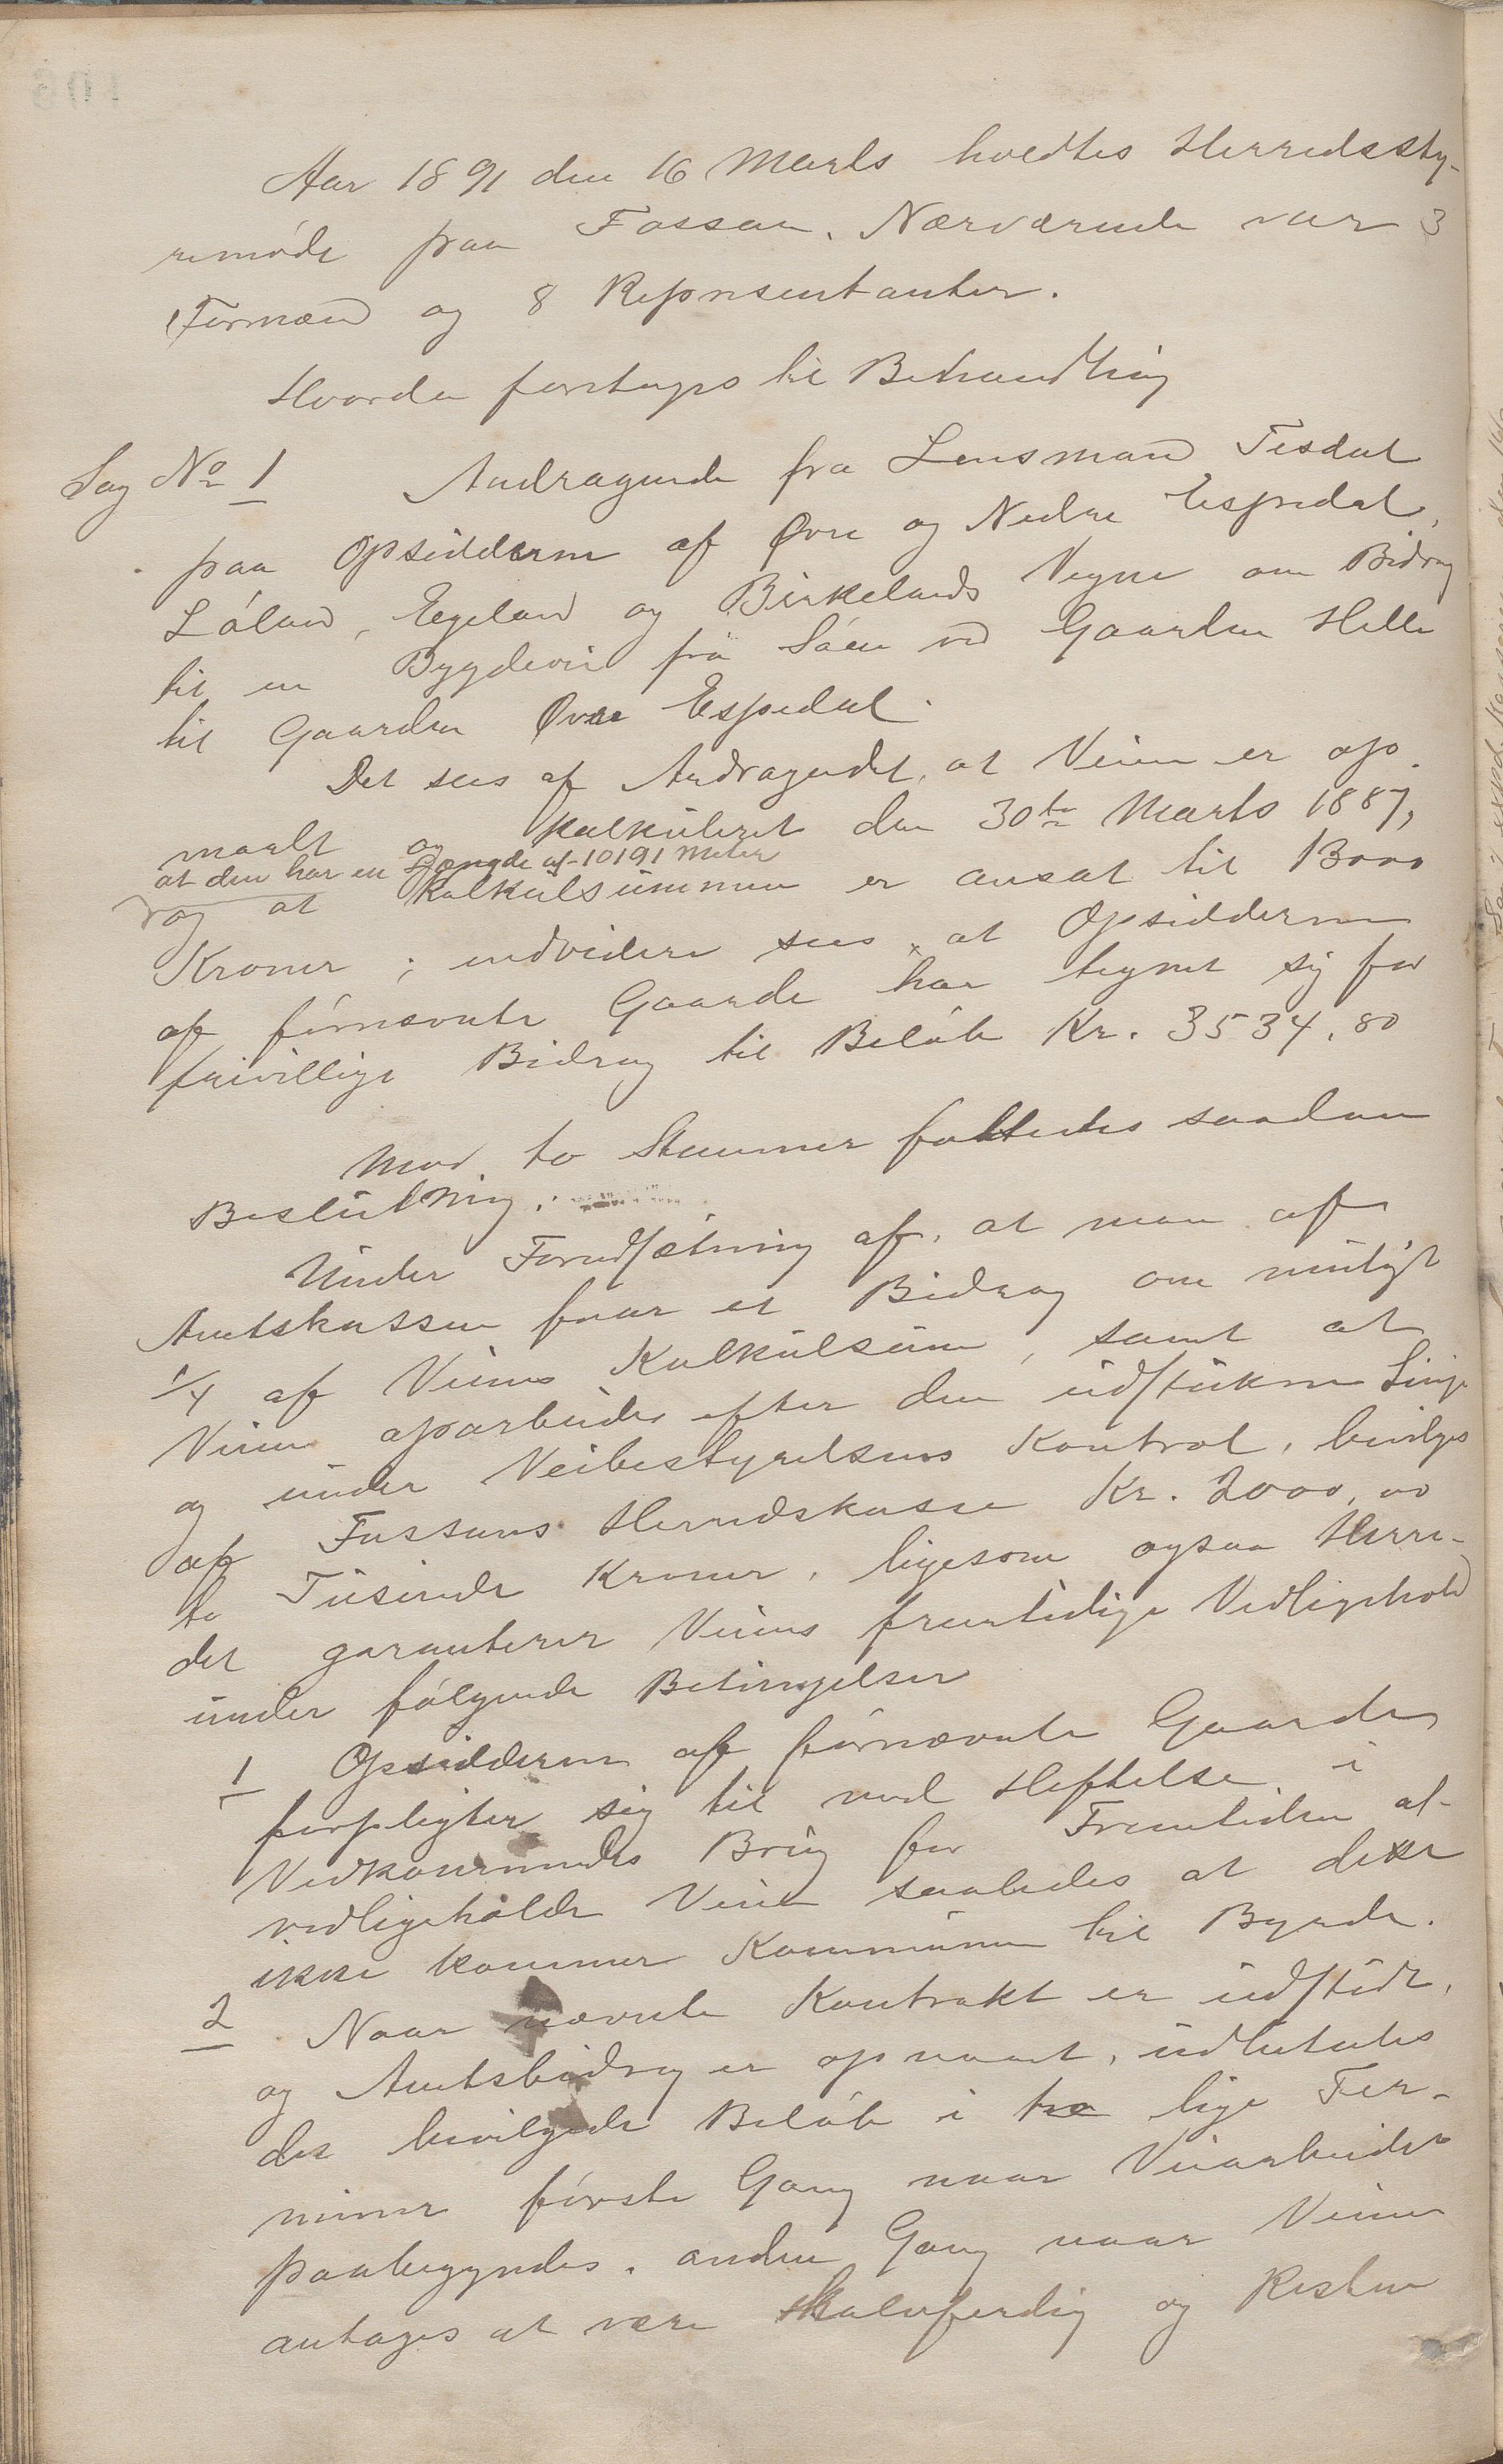 Aar 1891 den 16 Marts holdtes Herredssty-
remøde paa Fossan. Nærværende var 3
Formænd og 8 Repræsentanter.
Hvorda foretoges til Behandling
Sag No 1 Andragende fra Lensmand Tisdal
paa Opsidderne af Øvre og Nedre Espedal,
Løland, Eegeland og Birkelands Vegne om Bidrag
til en Bygdevei fra Søen ved Gaarden Helle
til Gaarden Øvre Espedal.
Det sees af Andragendet, at Veien er op-
maalt og kalkuleret den 30te Marts 1887,
at den har en Længde af 10191 Meter
og at Kalkulsummen er ansat til 13000
Kroner; endvidere sees, at Opsidderne
af førnævnte Gaarde har tegnet sig for
frivillige Bidrag til Beløb Kr. 3534,80
Mod to Stemmer fattedes saadan
Beslutning:
Under Forudsætning af, at man af
Amtskassen faar et Bidrag om muligt
1/4 af Veiens Kalkulsum, samt at
Veien oparbeides efter den udstukne Linje
og under Veibestyrelsens Kontrol, bevilges
af Fossans Herredskasse Kr. 2000,00
to Tusinde Kroner, ligesom ogsaa Herre-
det garanterer Veiens fremtidige Vedligehold
under følgende Betingelser
1 Opsidderne af førnævnte Gaarde
forpligter sig til med Heftelse i
Vedkommendes Brug for Fremtiden at
vedligeholde Veien saaledes at dette
ikke kommer Kommunen til Byrde.
2 Naar nævnte Kontrakt er udstedt,
og Amtsbidrag er opnaaet, udbetales
det bevilgede Beløb i tre lige Ter-
miner første Gang naar Veiarbeidet
paabegyndes, anden Gang naar Veien
antages at være halvferdig og Resten